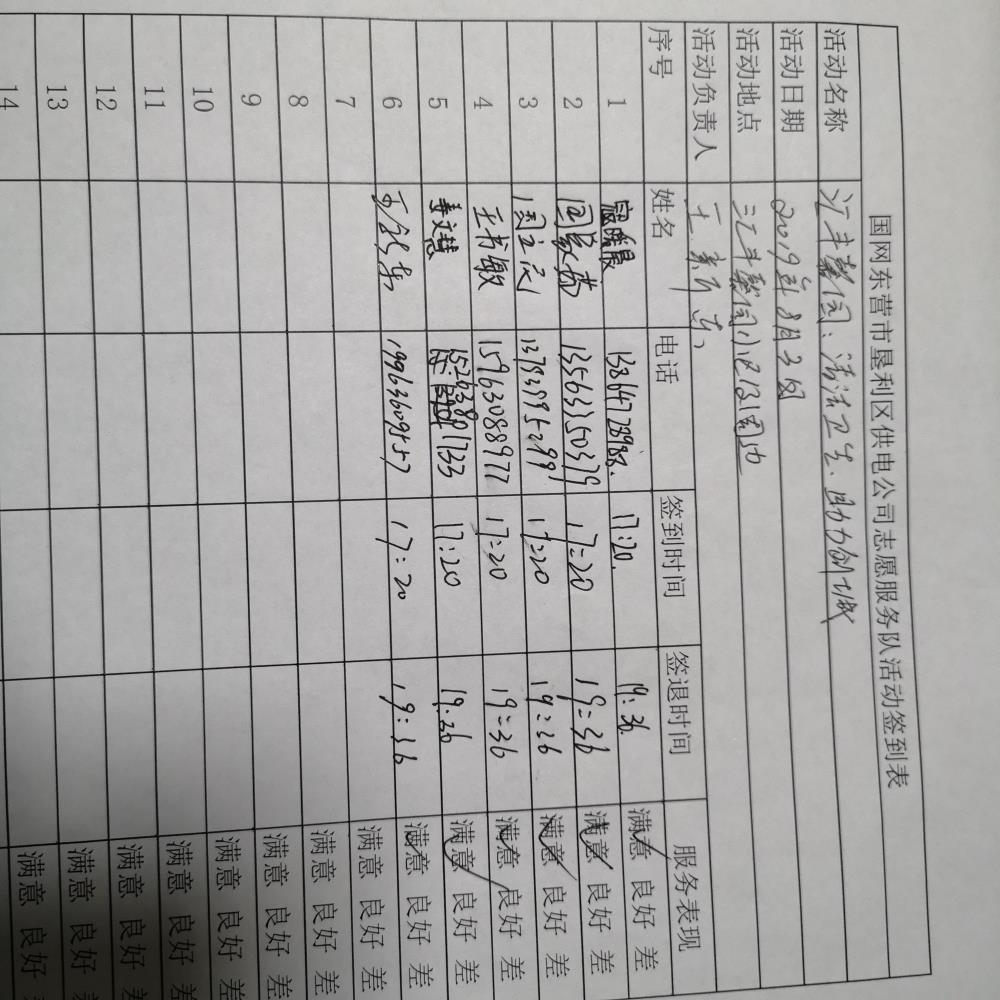 国网东营市垦利区供电公司志愿服务队活动签到表
活动名称 汇丰馨园：清洁卫生、助力创城
活动日期 2019年8月3日
活动地点 汇丰馨园小区及周边
活动负责人 王
序号 姓名 电话 签到时间 签退时间 服务表现
1 晓晨 13864728988. 17:20. 19:36 满意 良好 差
2 13563350379 17:20 19:36 满意 良好 差
3 周立民 13793995299 17:20 19:36 满意 良好 差
4 王书敏 15963088977 17:20 19:36 满意 良好 差
5 姜文慧 15263801733 17:20 19:36 满意 良好 差
6 19963609557 17:20 19:36 满意 良好 差
7 满意 良好 差
8 满意 良好 差
9 满意 良好 差
10 满意 良好 差
11 满意 良好 差
12 满意 良好 差
13 满意 良好 差
14 满意 良好 差